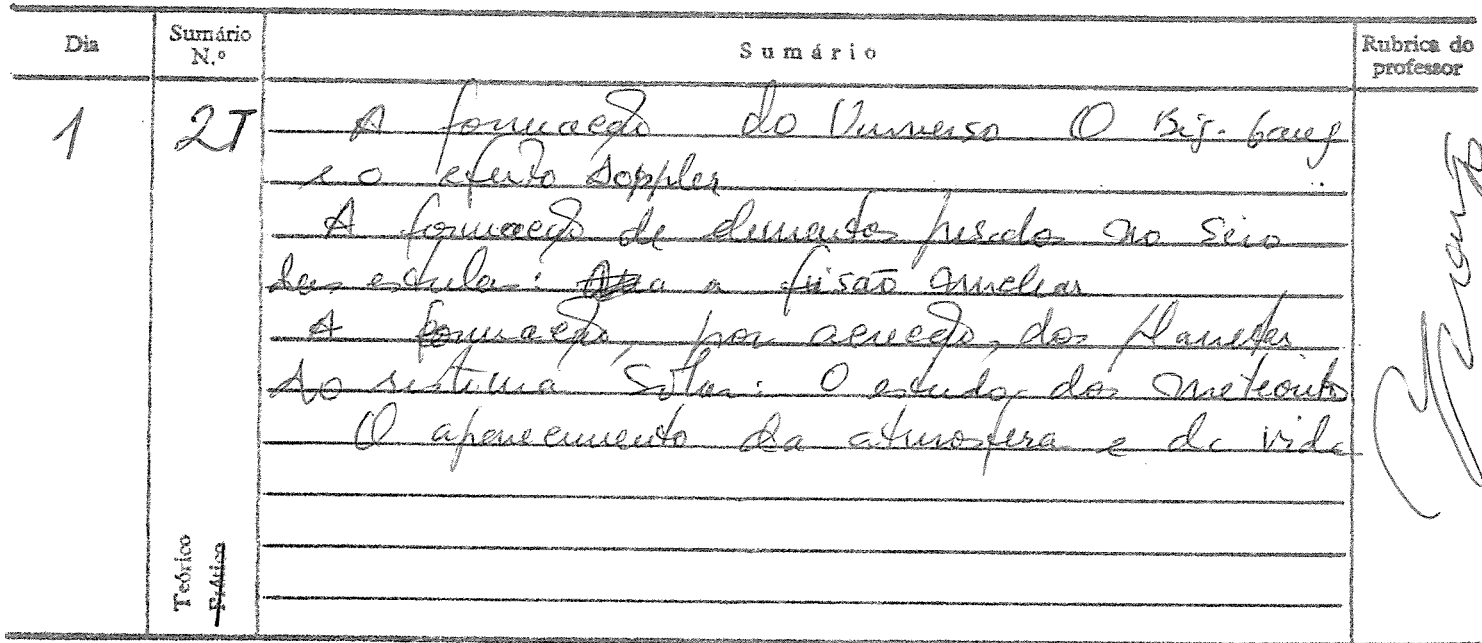 Dia Sumário N.º Sumário Rubrica do professor
1 2T A formação do Universo O Big-bang
e o efeito Doppler
A formação de elementos pesados no seio
das estrelas: a fusão nuclear
A formação, por acreção, dos planetas
do sistema Solar: O estudo dos meteoritos
O aparecimento da atmosfera e da vida
Teórico
Prático